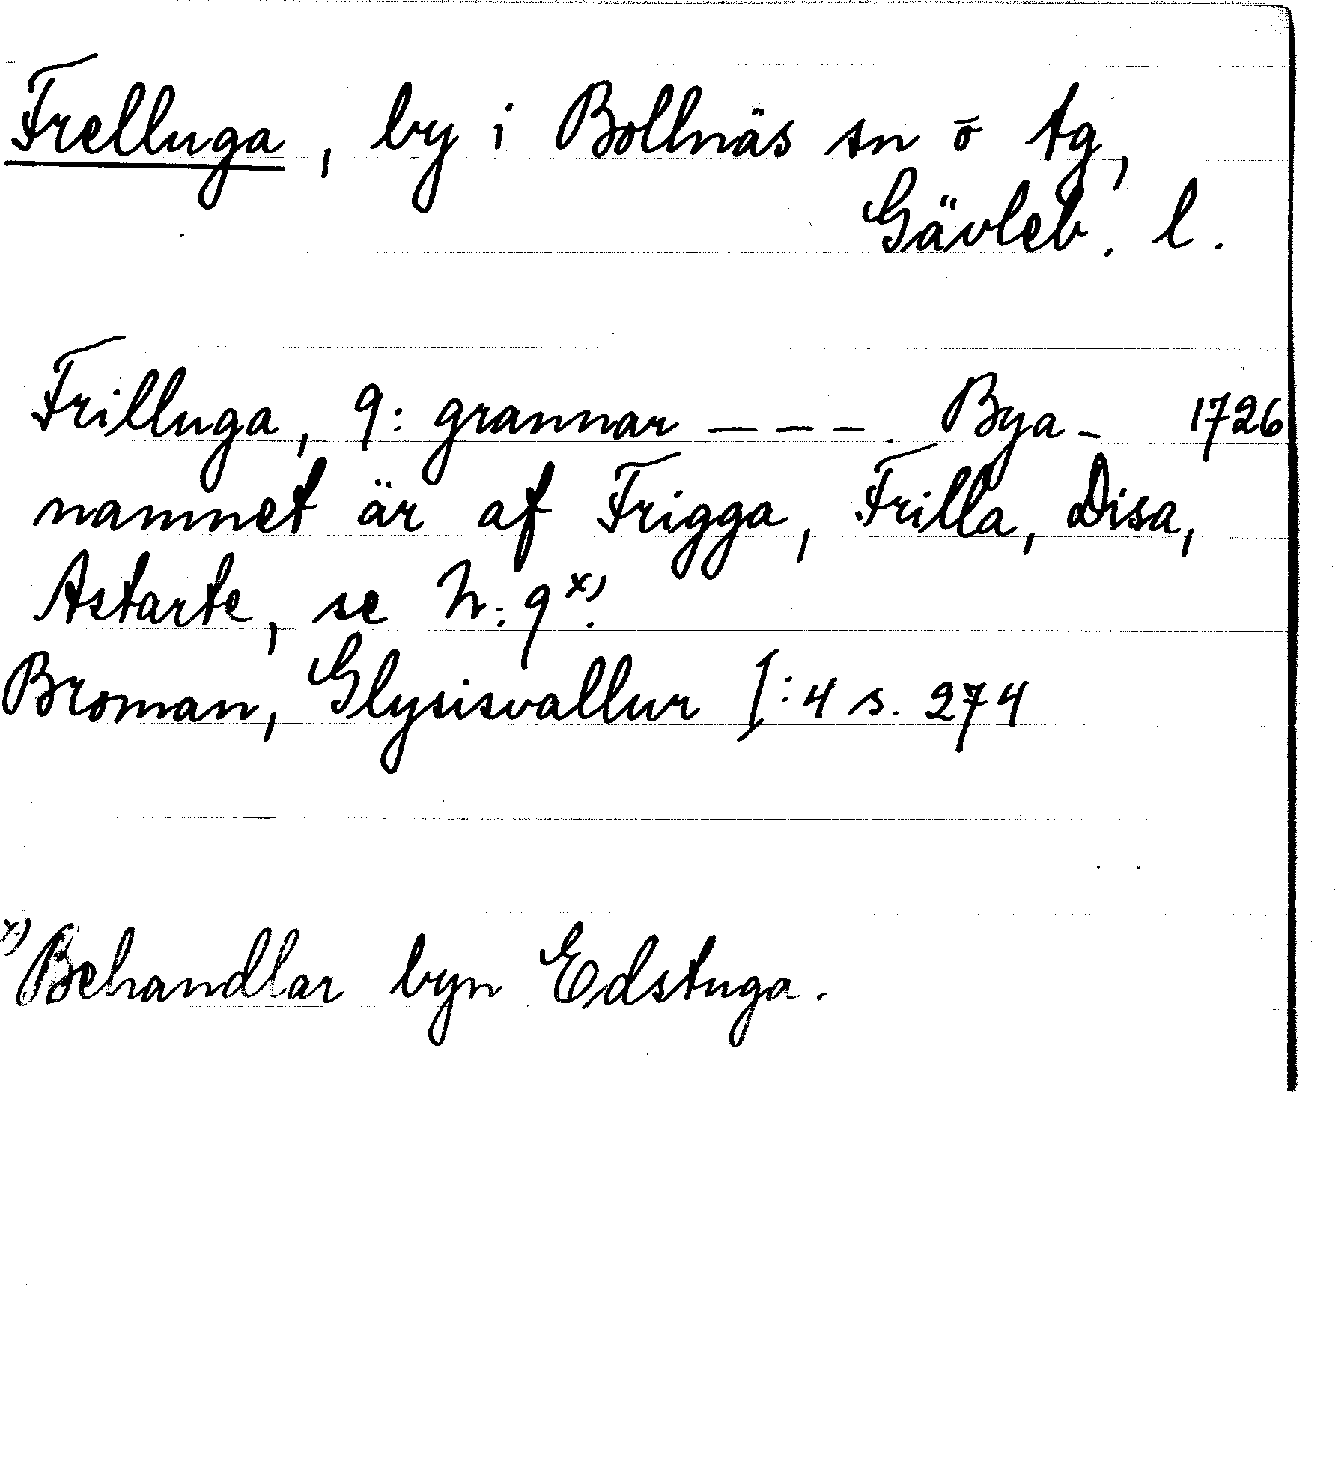 Frelluga, by i Bollnäs sn o tg,
Gävleb. l.
Frilluga, 9: grannar ---. Bya- 1726
namnet är af Frigga, Frilla, Disa,
Astarte, se N:9 x).
Broman, Glysisvallur I:4 s. 274
x) Behandlar byn Edstuga.